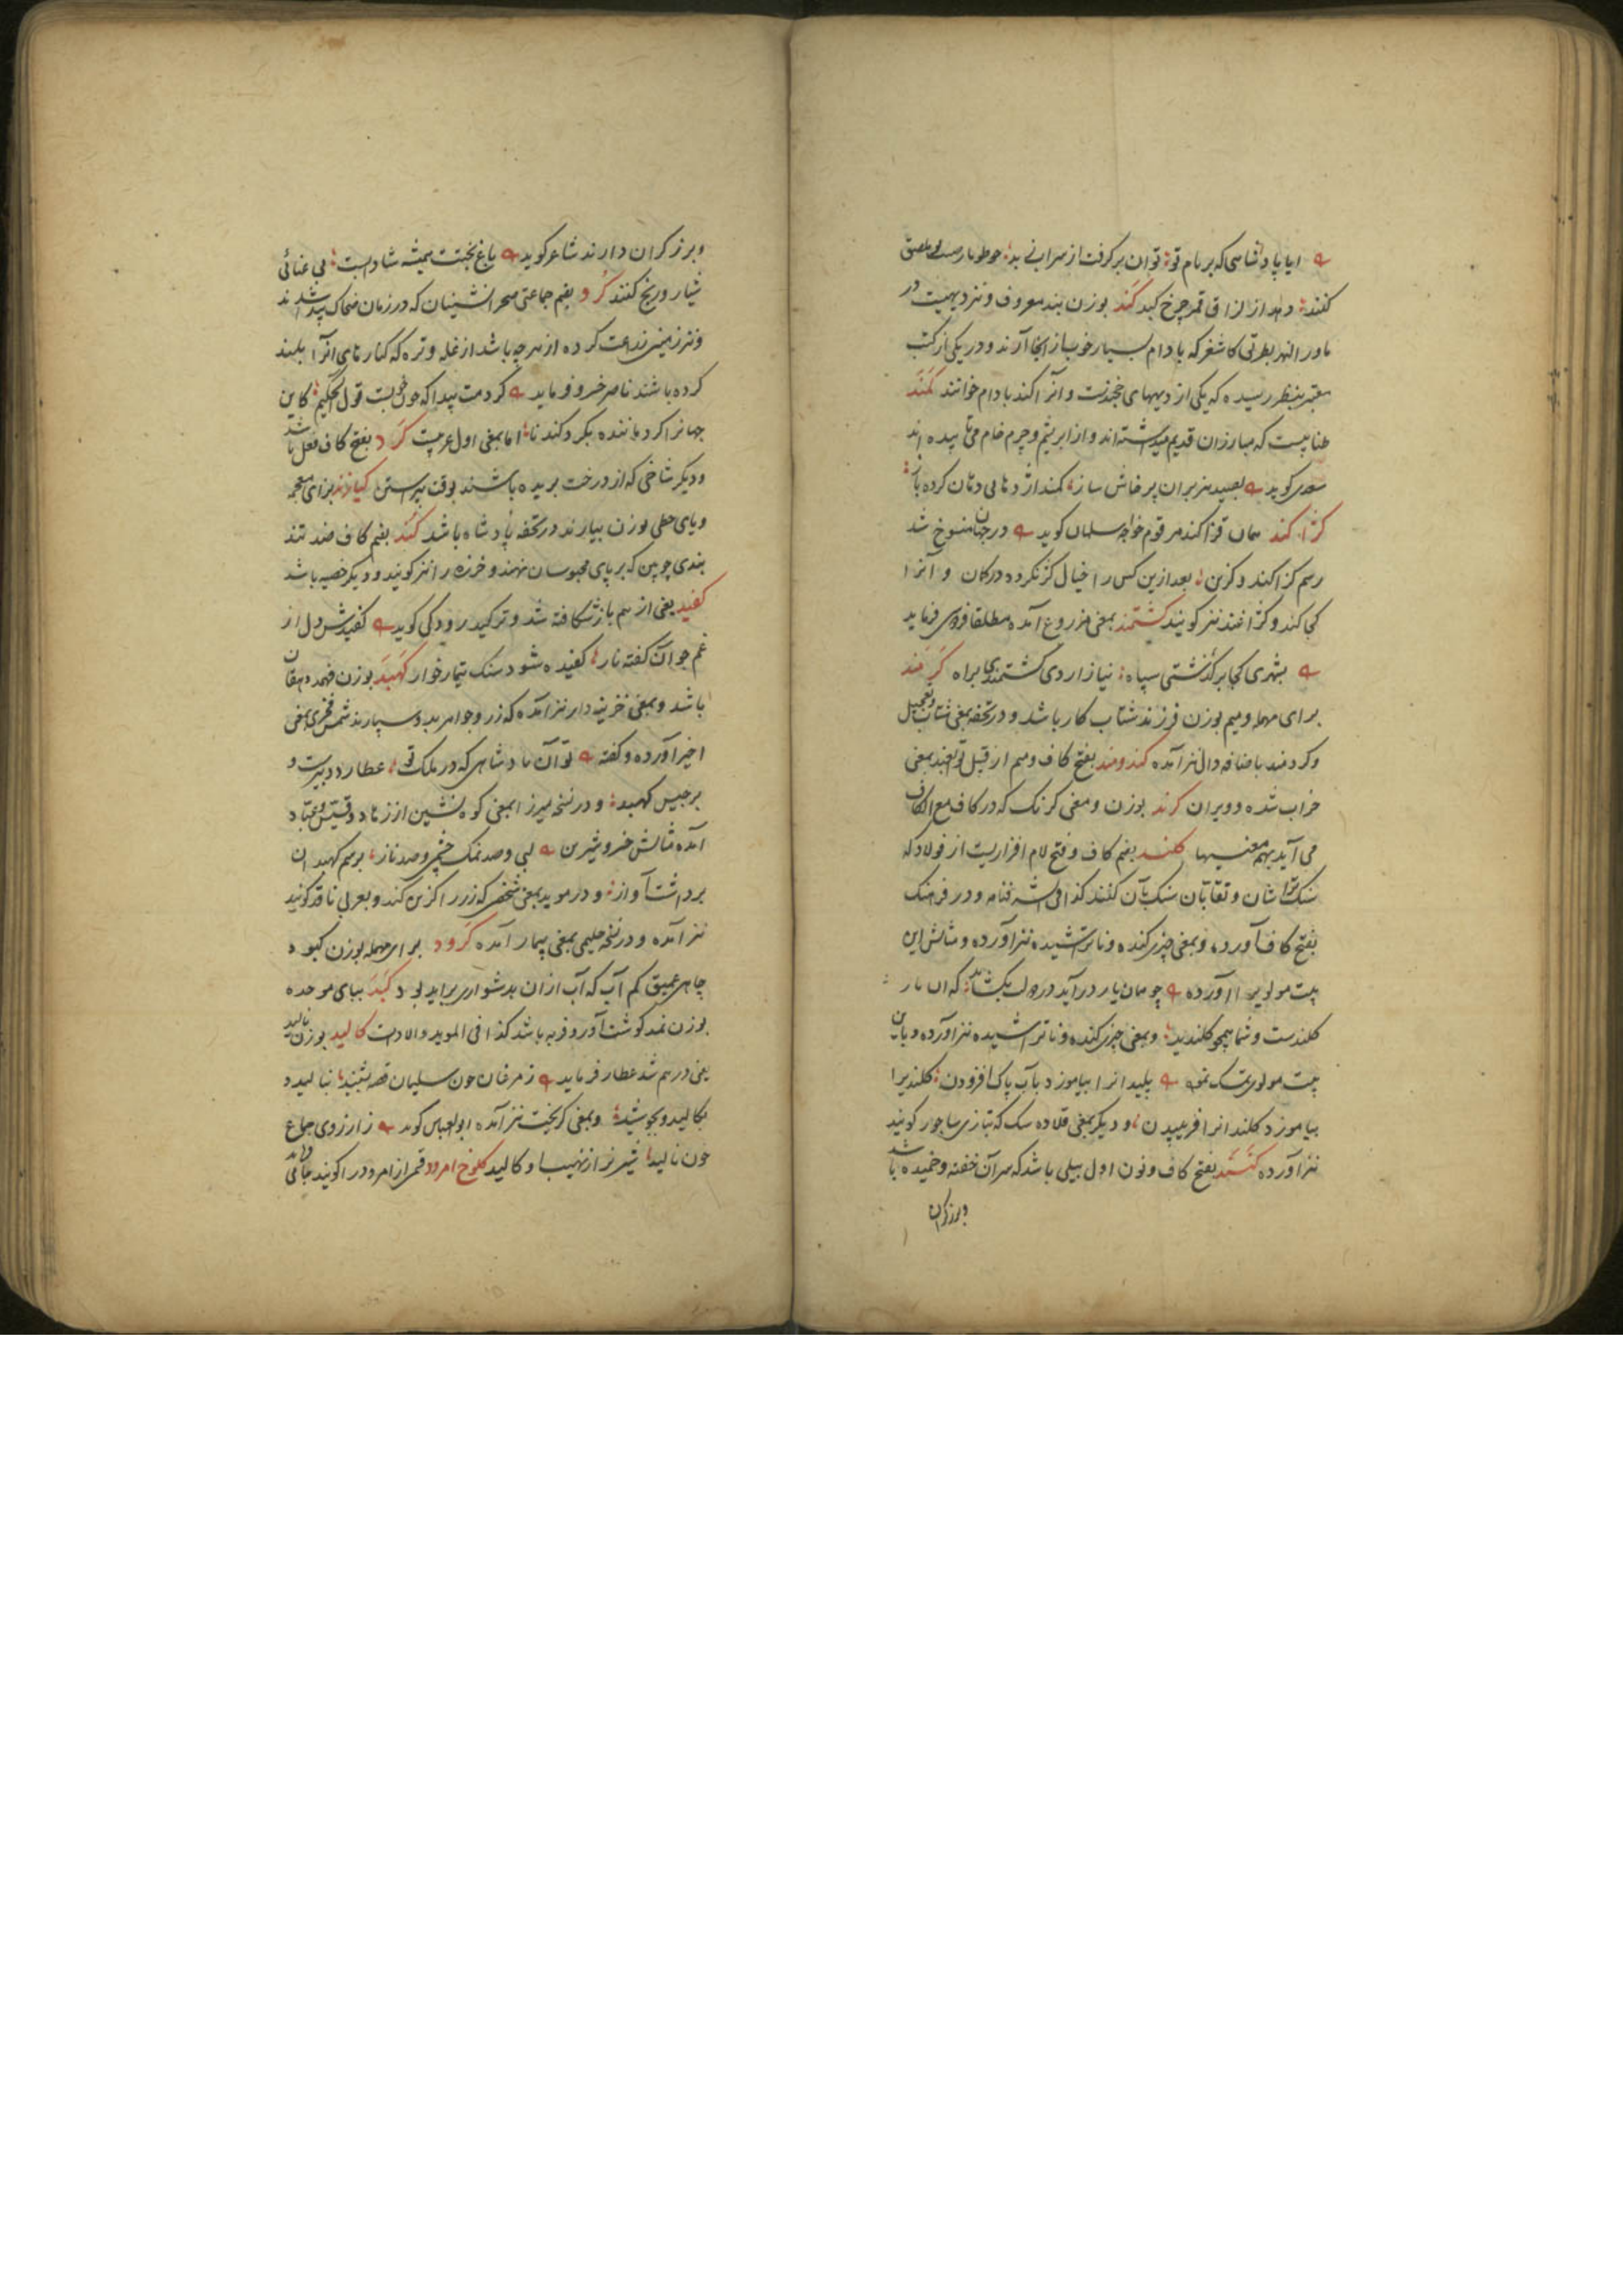 ایا پادشاهی که بر بام تو توان برگرفت از سرابی بد
کنند کند بوزن بند معروف و نیز دیهیست در
ماورا النهر بطرتی کاشغر که بادام بسیار خوب از انجا آرند و در یکی از کتب
معتبر بنظر رسیده که یکی از دیههای خجندست و آنرا کند بادام خوانند کمند
طنابیست که مبارزان قدیم میداشته اند و از ابریشم و چرم خام می تابیده اند
سعدی کوید بصید هزبران پرخاش ساز کمند اژدهای دمان کرده باز
کژاکند همان قزاکند مرقوم خواجه سلمان کوید در جهان منسوخ شد
رسم کژاکند و کزین بعد ازین کس را خیال کژ نکردد در کان و آنرا
کجاکند و کژاغند نیز کویند کشتمند بمعنی مزروع آمده مطلقا فردوسی فرماید
بشهری کجا برکذشتی سپاه نیازاردی کشتمندی براه کرمند
برای مهمله و میم بوزن فرزند شتاب کار باشد و در تحفه بمعنی شتاب و تعجیل
و کردمند باضافه دال نیز آمده کندومند بفتح کاف و میم از قبیل بمعنی
خراب شده و ویران کرند بوزن و معنی کرنک که در کاف مع الکاف
می آید بهمه معنیها کلند بضم کاف و فتح لام افزاریست از فولاد که
سنک تراشان و نقابان سنک بآن کنند کذا فی شرفنامه و در فرهنک
بفتح کاف آورده و بمعنی چیزی کنده و ناتراشیده نیز آورده و مثالش این
بیت مولوی را آورده چو مهمان یار درآید در دل بکشاید که آن یار
کلندست و شما همچو کلندید و بمعنی چیزی کنده و ناتراشیده نیز آورده و باین
بیت مولوی متمسک پلیدانرا بیاموزد بآب پاک افزودن کلندیرا
بیاموزد کلندانرا افرییدن و دیکر بمعنی قلاده سک که بتازی ساجور کویند
نیز آورده کنند بفتح کاف و نون اول بیلی باشد که سر آن خفته و خمیده باشد
و برزکران
و برزکران دارند شاعر کوید باغ بختت همیشه شادابست بی عنائی
شیار و رنج کنند کرد بضم جماعتی صحرانشینان که در زمان ضحاک پیدا شدند
و نیز زمینی زراعت کرده از هرچه باشد از غله و تره که کنارهای آنرا بلند
کرده باشند ناصر خسرو فرماید کردمت پیدا که خوبست قول الحکیم کاین
جهانرا کرد ماننده بکرد کندنا اما بمعنی اول عربیست کرد بفتح کاف فعل باشد
و دیکر شاخی که از درخت بریده باشند بوقت پیراستن کیازند برای معجمه
و یای حطی بوزن بیارند در تحفه پادشاه باشد کند بضم کاف ضد تند
بندی چوبین که بر پای محبوسان نهند و خرزه را نیز کویند و دیکر خصیه باشد
کفید یعنی از هم باز شکافته شد و ترکید رودکی کوید کفیدش دل از
غم چو آن کفته نار کفیده شود سنک تیمارخوار کهبد بوزن فهمد دهقان
باشد و بمعنی خزینه دار نیز آمده که زر و جواهر بدو سپارند شمس فخری بمعنی
اخیر آورده و کفته تو آن پادشاهی که در ملک تو عطارد دبیرست و
برجیس کهبد و در نسخه میرزا بمعنی کوه نشین از زهاد و قسیس و عباد
آمده مثالش خسرو شیرین لبی و صد نمک چشمی و صد ناز برسم کهبدان
برداشت آواز و در موید بمعنی شخصی که زر را کزین کند و بعربی ناقد کویند
نیز آمده و در نسخه حلیمی بمعنی پیمار آمده کرود برای مهمله بوزن کبود
چاهی عمیق کم آب که آب از آن بدشواری برآید بود کبد ببای موحده
بوزن نمد کوشت آور و فربه باشد کذا فی الموید و الادات کالید بوزن بالید
یعنی درهم شد عطار فرماید ز مرغان چون سلیمان قصه بشنید بنالید و
بکالید و بجوشید و بمعنی کریخت نیز آمده ابوالعباس کوید ز ارزوی جماع
چون نالید شیر نر از نهیب او کالید کلوخ امرود قسمی از امرود را کویند جامی